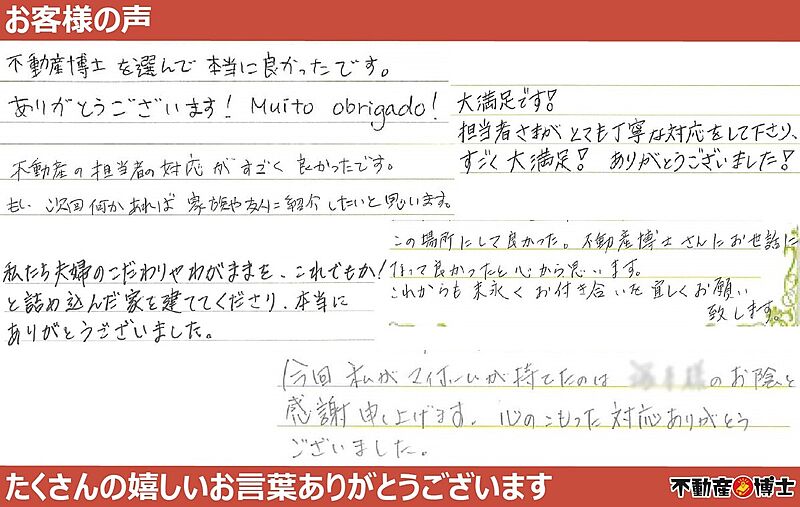 お客様の声
不動産博士を選んで本当に良かったです。
ありがとうございます! Muito obrigado!
大満足です!
担当者さまがとても丁寧な対応をして下さり、
すごく大満足! ありがとうございました!
不動産の担当者の対応がすごく良かったです。
もし次回何かあれば家族や友人に紹介したいと思います。
この場所にして良かった。不動産博士さんにお世話に
なって良かったと心から思います。
これからも末永くお付き合いを宜しくお願い
致します。
私たち夫婦のこだわりやわがままを、これでもか!
と詰め込んだ家を建ててくださり、本当に
ありがとうございました。
今回私がマイホームが持てたのは のお陰と
感謝申し上げます。心のこもった対応ありがとう
ございました。
たくさんの嬉しいお言葉ありがとうございます
不動産博士